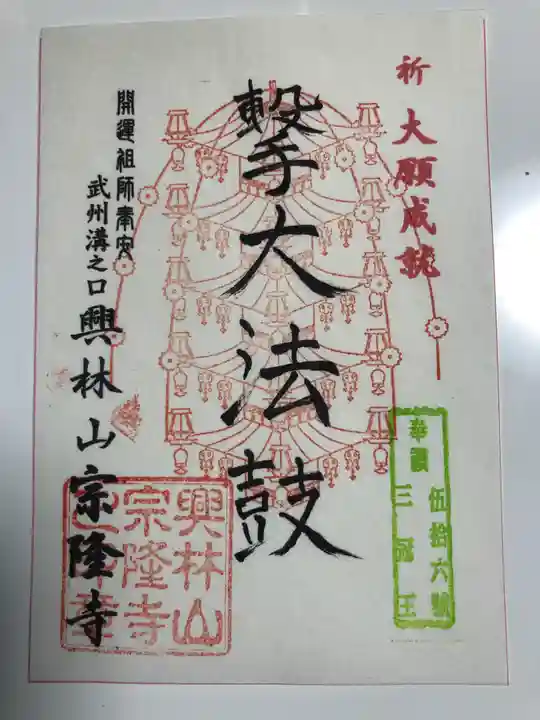 祈 大願成就
奉讃 伍拾六號
三冠王
撃大法鼓
開運祖師奉安
武州溝之口 興林山 宗隆寺
興林山
宗隆寺